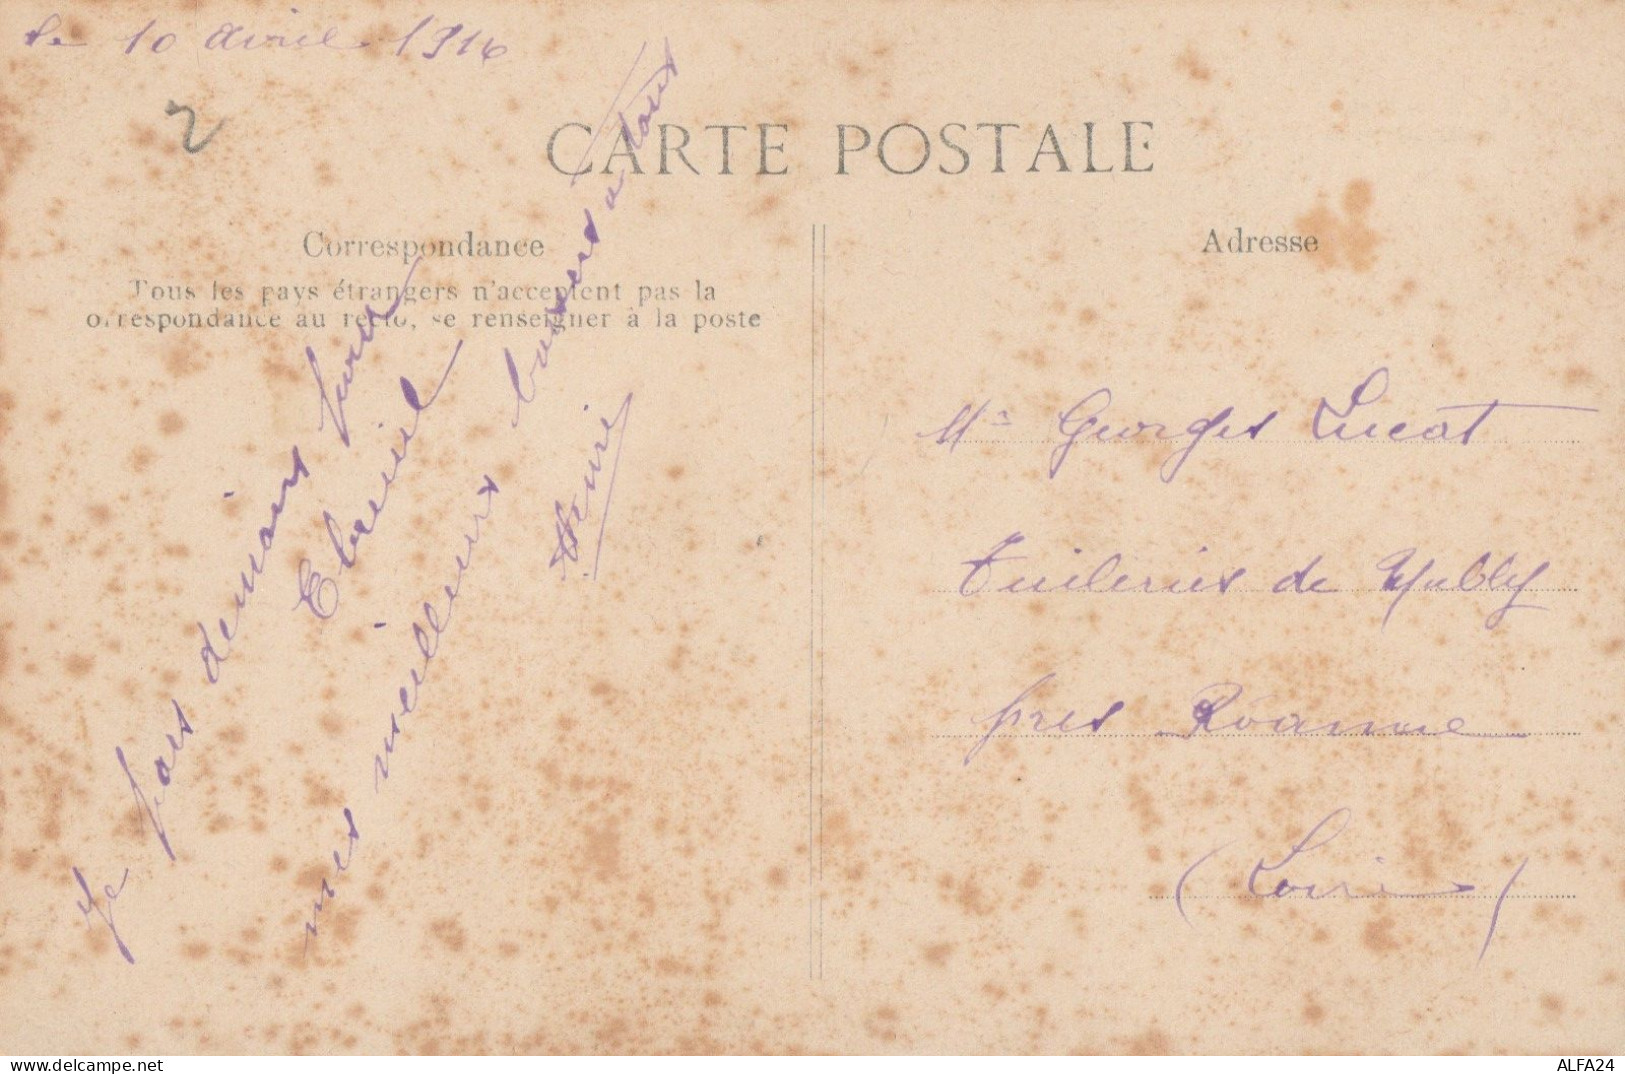 le 10 avril 1916
2
CARTE POSTALE
Correspondance
Tous les pays étrangers n'acceptent pas la
correspondance au recto, se renseigner à la poste
Je pars demain pour
mes meilleurs baisers à tous
Henri
Adresse
Mr Georges Lucat
Tuileries de Mably
près Roanne
(Loire)
delcampe.net
ALFA24